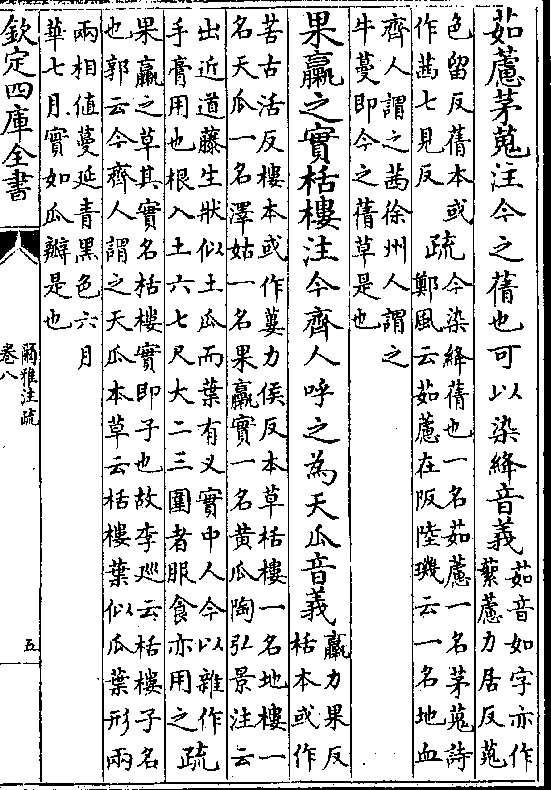 茹藘茅蒐注今之蒨也可以染絳音義茹音如字亦作
蕠藘力居反蒐
色留反蒨本或
作茜七見反
疏今染絳蒨也一名茹藘一名茅蒐詩
鄭風云茹藘在阪陸璣云一名地血
齊人謂之茜徐州人謂之
牛蔓即今之蒨草是也
果臝之實栝樓注今齊人呼之為天瓜音義臝力果反
栝本或作
苦古活反樓本或作蔞力侯反本草栝樓一名地樓一
名天瓜一名澤姑一名果臝實一名黄瓜陶弘景注云
出近道藤生狀似土瓜而葉有叉實中人今以雜作
手膏用也根入土六七尺大二三圍者服食亦用之
疏
果臝之草其實名栝樓實即子也故李廵云栝樓子名
也郭云今齊人謂之天瓜本草云栝樓葉似瓜葉形兩
兩相值蔓延青黑色六月
華七月實如瓜瓣是也
欽定四庫全書
爾雅注疏
卷八
五